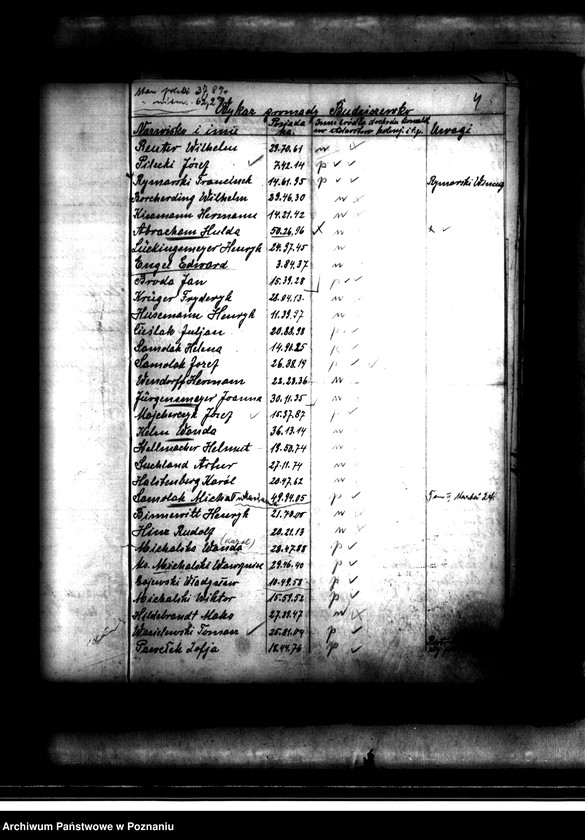 stan polski 37,87%
" niem. 62,2%
4
Wykaz gromady Budziszewko
Nazwisko i imię Posiada ha. Uwagi
Reuter Wilhelm 29.70.61 n
Pilecki Józef 7.42.14 p
Rymarski Franciszek 14.61.95 p Rymarski
Borcherding Wilhelm 39.46.30 n
Kinemann Hermann 14.21.42 n
Abracham Hulda 50.26.96 n
Lückingemeyer Henryk 24.37.45 n
Engel Edward 3.84.37 n
Broda Jan 15.39.28 p
Krüger Fryderyk 28.04.13 n
Husemann Henryk 11.39.57 n
Cieślak Juljan 20.88.98 p
Samolak Helena 14.91.25 p
Samolak Józef 26.38.19 p
Wendorff Hermann 22.23.36 n
Jürgensmeyer Joanna 30.11.35 n
Majcherczyk Józef 15.37.87 p
Helm Wanda 36.13.14 n
Hellmacher Helmut 19.50.74 n
Suchland Artur 27.11.74 n
Halstenberg Karól 20.47.62 n
Samolak Michał 49.94.05 p
Binnewitt Henryk 21.70.00 n
Hinz Rudolf 20.21.13 n
Michalska Wanda 28.47.88 p
Michalski Wawrzyniec 29.16.40 p
Zajewski Władysław 10.49.58 p
Michalski Wiktor 15.59.52 p
Hildebrandt Maks 27.09.47 n
Wasielewski Tomasz 25.01.04 p
Pawełek Zofja 18.44.76 p
Archiwum Państwowe w Poznaniu